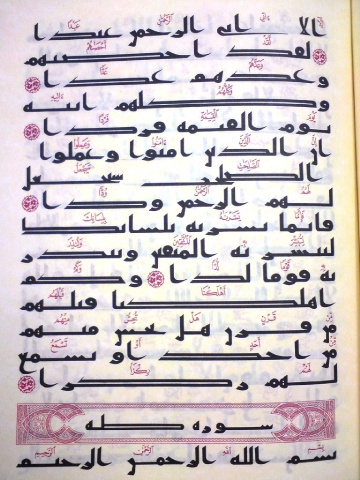 الا اتى الرحمن عبدا
لقد احصيهم
وعدهم عدا
وكلهم اتيه
يوم القيمه فردا
ان الذين امنوا وعملوا
الصلحت سيجعل
لهم الرحمن ودا
فانما يسرنه بلسانك
لتبشر به المتقين وتنذر
به قوما لدا وكم
اهلكنا قبلهم
من قرن هل تحس منهم
من احد او تسمع
لهم ركزا
سوره طه
بسم الله الرحمن الرحيم